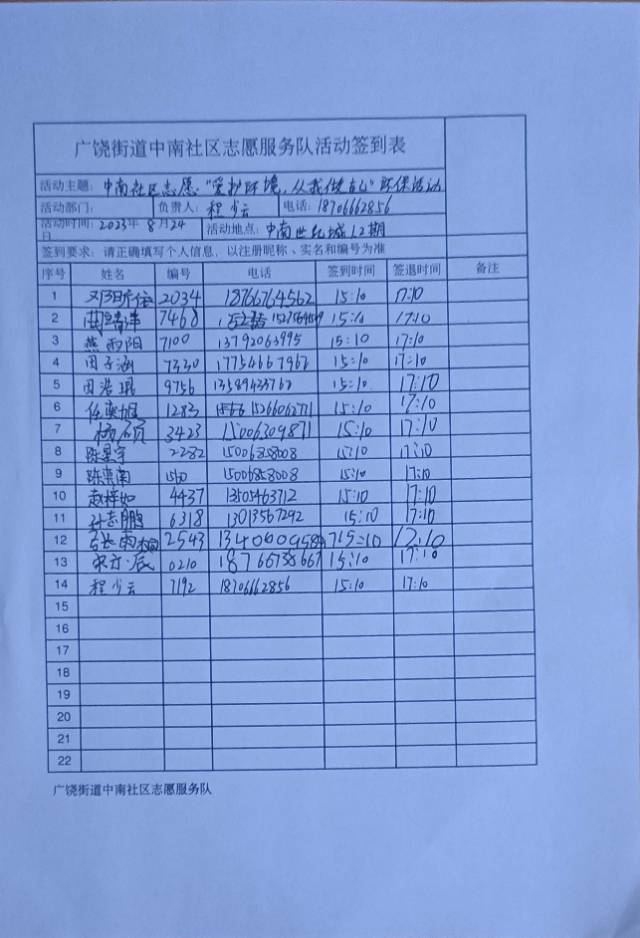 广饶街道中南社区志愿服务队活动签到表
活动主题: 中南社区志愿"爱护环境,从我做起"环保活动
活动部门: 负责人: 程少云 电话: 18706662856
活动时间: 2023年8月24日 活动地点: 中南世纪城12期
签到要求: 请正确填写个人信息, 以注册昵称、实名和编号为准
序号 姓名 编号 电话 签到时间 签退时间 备注
1 2034 18766764562 15:10 17:10
2 7468 15:10 17:10
3 燕雨阳 7100 13792063995 15:10 17:10
4 田子涵 7330 17754667962 15:10 17:10
5 田浩琨 9756 13589433762 15:10 17:10
6 1283 15266062711 15:10 17:10
7 杨硕 3423 15006309871 15:10 17:10
8 陈星宇 2282 15006858008 15:10 17:10
9 15006858008 15:10 17:10
10 赵梓如 4437 13105463712 15:10 17:10
11 孙志鹏 6318 13013567292 15:10 17:10
12 2543 15:10 17:10
13 0210 15:10 17:10
14 程少云 7192 18706662856 15:10 17:10
15
16
17
18
19
20
21
22
广饶街道中南社区志愿服务队